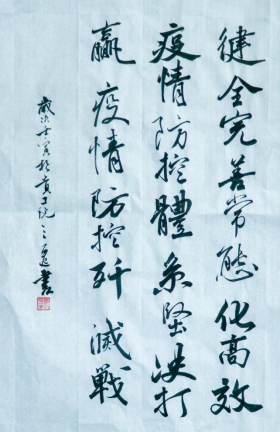 健全完善常態化高效
疫情防控體系堅決打
贏疫情防控歼滅戰
歲次壬寅於貴工院三遷書